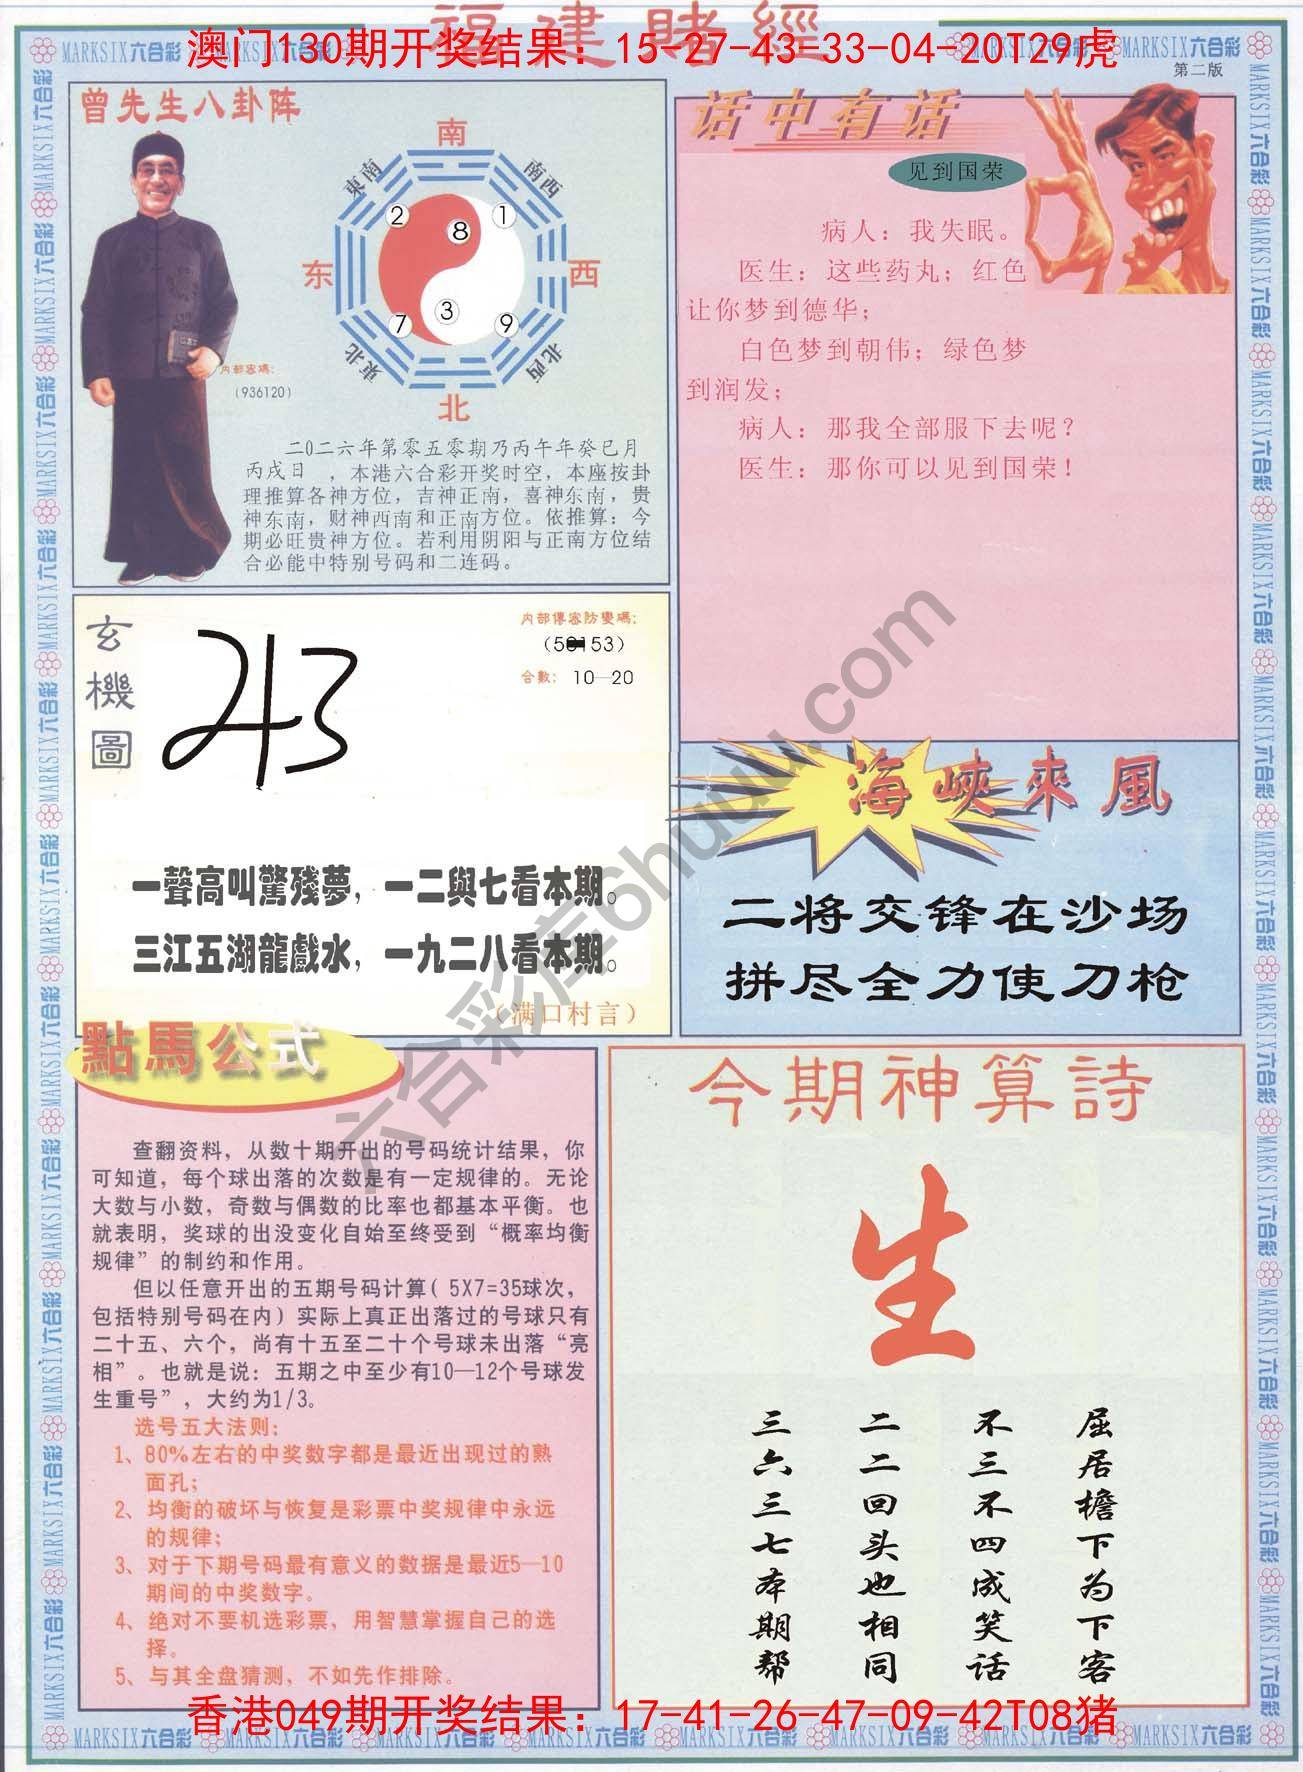 福建賭經
澳门130期开奖结果：15-27-43-33-04-20T29虎
MARKSIX六合彩
第二版
曾先生八卦阵
南
東南
南西
东
西
東北
北西
北
2
1
8
3
7
9
内部密碼：
（936120）
二0二六年第零五零期乃丙午年癸巳月
丙戌日，本港六合彩开奖时空，本座按卦
理推算各神方位，吉神正南，喜神东南，贵
神东南，财神西南和正南方位。依推算：今
期必旺贵神方位。若利用阴阳与正南方位结
合必能中特别号码和二连码。
话中有话
见到国荣
病人：我失眠。
医生：这些药丸；红色
让你梦到德华；
白色梦到朝伟；绿色梦
到润发；
病人：那我全部服下去呢？
医生：那你可以见到国荣！
玄機圖
内部傳密防變碼：
合數：10—20
一聲高叫驚殘夢，一二與七看本期。
三江五湖龍戲水，一九二八看本期。
（满口村言）
海峽來風
二将交锋在沙场
拼尽全力使刀枪
點馬公式
查翻资料，从数十期开出的号码统计结果，你
可知道，每个球出落的次数是有一定规律的。无论
大数与小数，奇数与偶数的比率也都基本平衡。也
就表明，奖球的出没变化自始至终受到“概率均衡
规律”的制约和作用。
但以任意开出的五期号码计算（5X7=35球次，
包括特别号码在内）实际上真正出落过的号球只有
二十五、六个，尚有十五至二十个号球未出落“亮
相”。也就是说：五期之中至少有10—12个号球发
生重号”，大约为1/3。
选号五大法则：
1、80%左右的中奖数字都是最近出现过的熟
面孔；
2、均衡的破坏与恢复是彩票中奖规律中永远
的规律；
3、对于下期号码最有意义的数据是最近5—10
期间的中奖数字。
4、绝对不要机选彩票，用智慧掌握自己的选
择。
5、与其全盘猜测，不如先作排除。
今期神算詩
生
屈居檐下为下客
不三不四成笑话
二二回头也相同
三六三七本期帮
六合彩库6huuu.com
香港049期开奖结果：17-41-26-47-09-42T08猪